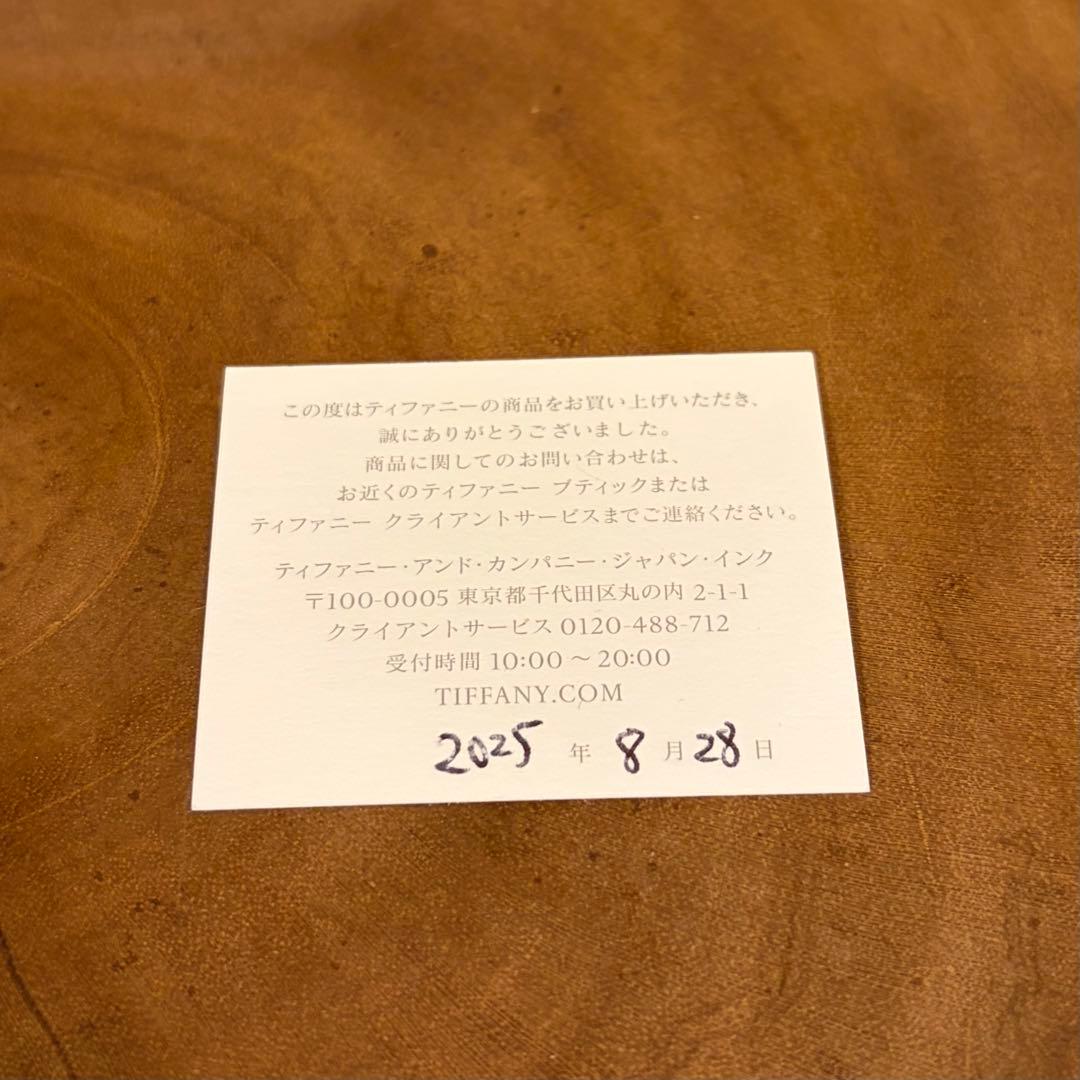 この度はティファニーの商品をお買い上げいただき、
誠にありがとうございました。
商品に関してのお問い合わせは、
お近くのティファニー ブティックまたは
ティファニー クライアントサービスまでご連絡ください。
ティファニー・アンド・カンパニー・ジャパン・インク
〒100-0005 東京都千代田区丸の内 2-1-1
クライアントサービス 0120-488-712
受付時間 10:00 〜 20:00
TIFFANY.COM
2025 年 8 月 28 日